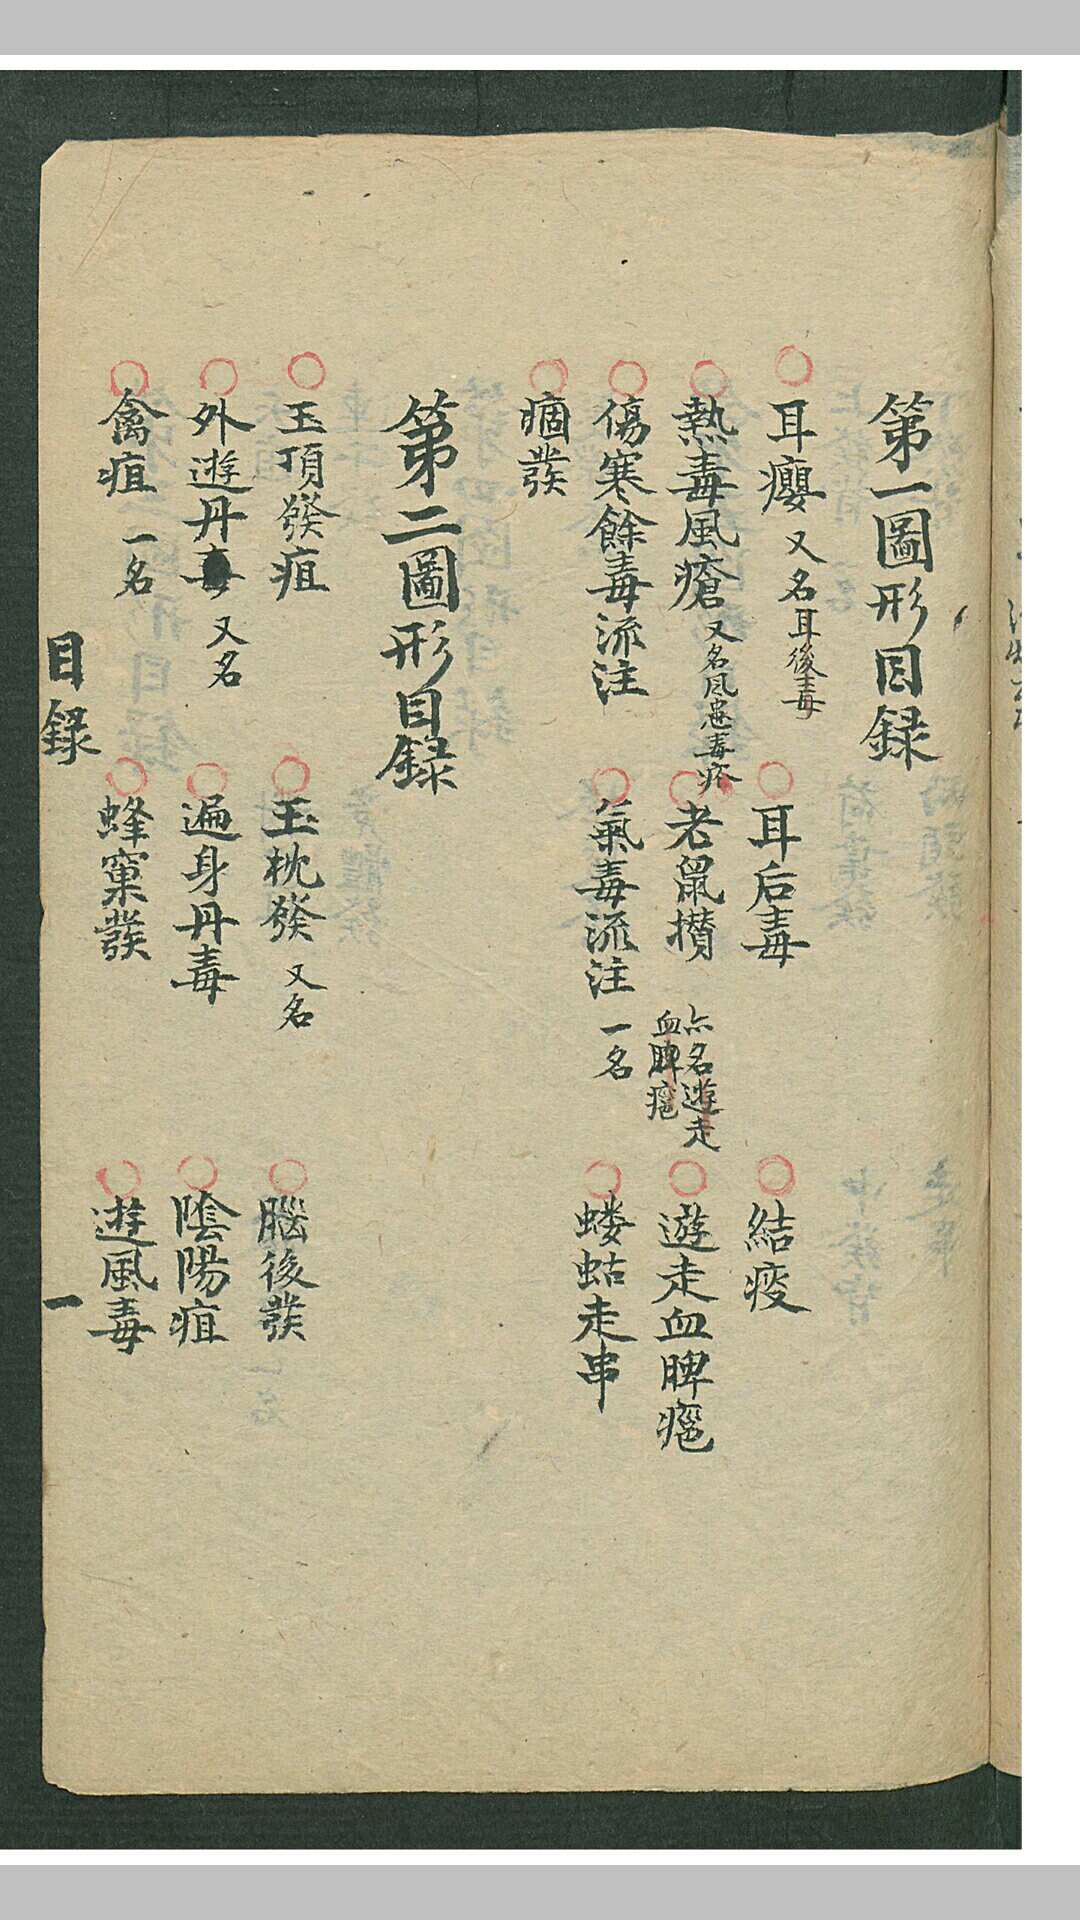 第一圖形目録
耳癭 又名耳後毒 耳后毒 結疫
熱毒風瘡 又名風毒 老鼠攅 亦名遊走血脾瘟 遊走血脾瘟
傷寒餘毒流注 氣毒流注 一名 蝼蛄走串
痼發
第二圖形目録
玉頂發疽 玉枕發 又名 腦後發
外遊丹毒 又名 遍身丹毒 陰陽疽
禽疽 一名 蜂窠發 遊風毒
目録 一